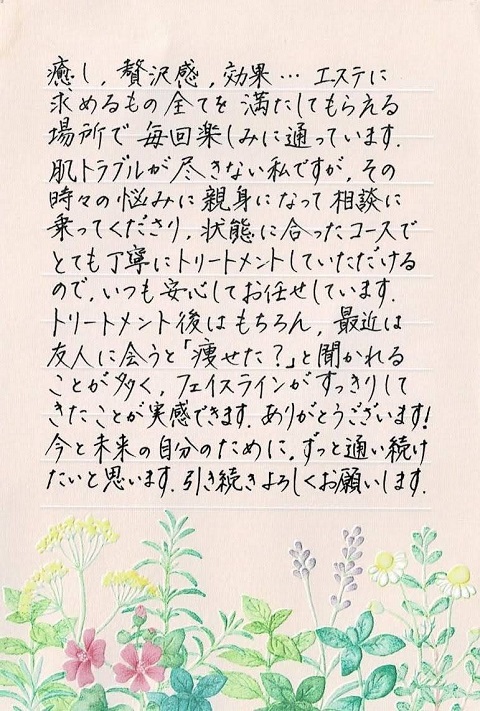 癒し,贅沢感,効果… エステに
求めるもの全てを満たしてもらえる
場所で毎回楽しみに通っています.
肌トラブルが尽きない私ですが,その
時々の悩みに親身になって相談に
乗ってくださり,状態に合ったコースで
とても丁寧にトリートメントしていただける
ので,いつも安心してお任せしています.
トリートメント後はもちろん,最近は
友人に会うと「痩せた?」と聞かれる
ことが多く,フェイスラインがすっきりして
きたことが実感できます.ありがとうございます!
今と未来の自分のために,ずっと通い続け
たいと思います.引き続きよろしくお願いします.